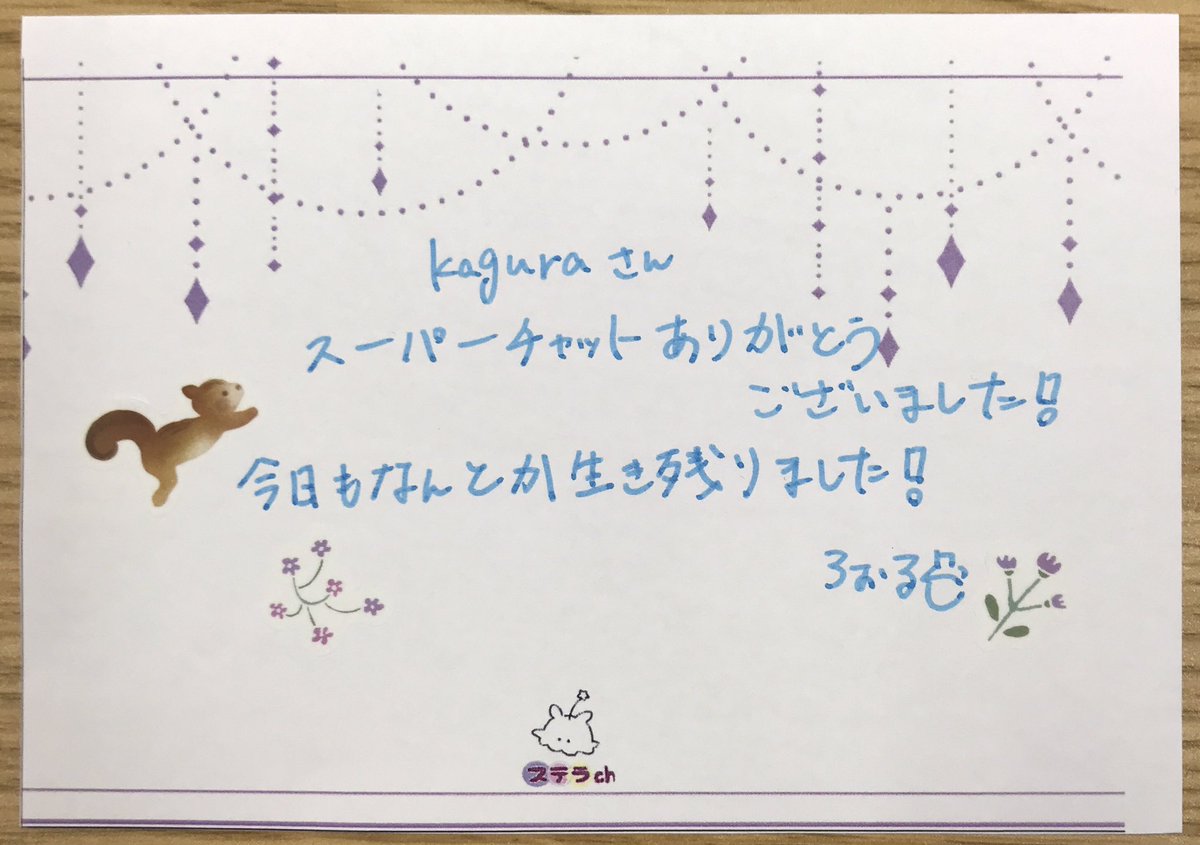 kaguraさん
スーパーチャットありがとう
ございました!
今日もなんとか生き残りました!
ろおる
ステラch